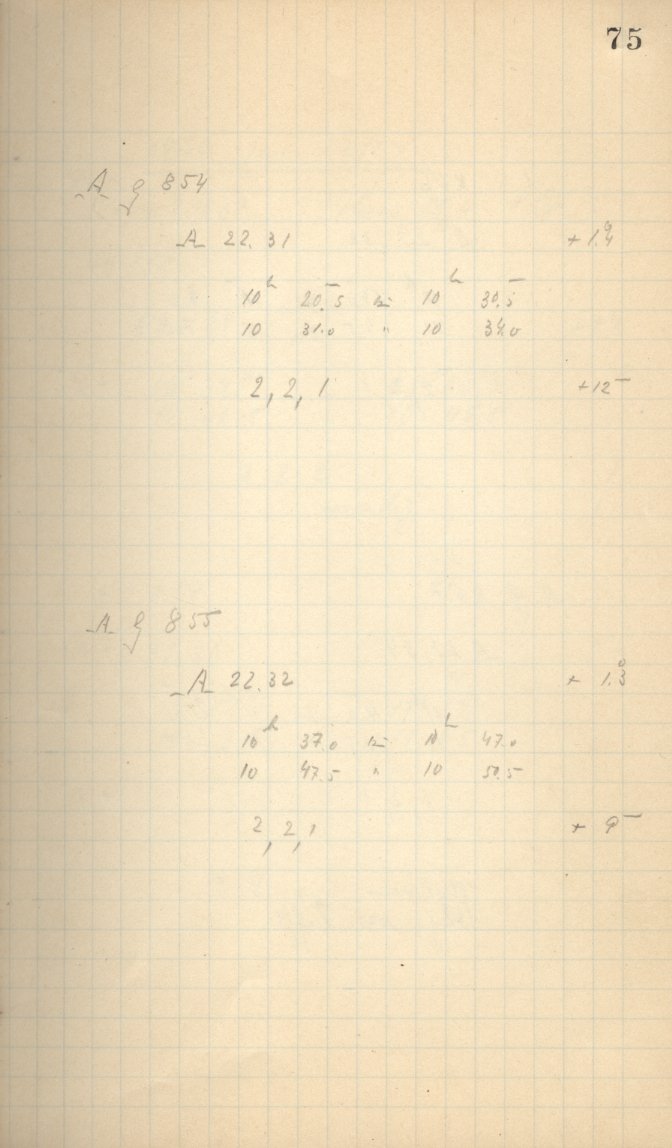 75
A g 854
A 22.31 +1.°4
10 h 20.5 bis 10 h 30.5
10 31.0 " 10 34.0
2, 2, 1 +12
A g 855
A 22.32 + 1.°3
10 h 37.0 bis 10 h 47.0
10 47.5 " 10 50.5
2, 2, 1 + 9